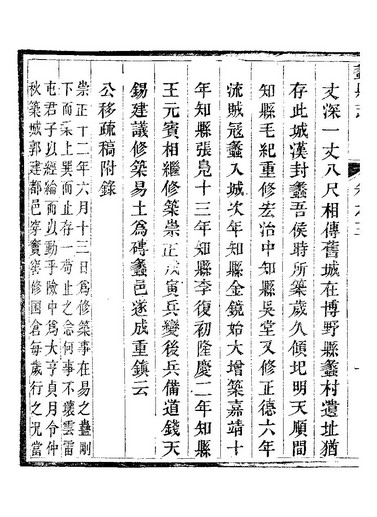 丈深一丈八尺相傳舊城在博野縣蠡村遺址猶
存此城漢封蠡吾侯時所築歲久傾圮明天順間
知縣毛紀重修宏治中知縣吳堂又修正德六年
流賊寇蠡入城次年知縣金鏡始大增築嘉靖十
年知縣張晃十三年知縣李復初隆慶二年知縣
王元賓相繼修築崇正戊寅兵變後兵備道錢天
錫建議修築易土爲磚蠡邑遂成重鎮云
公移疏稿附錄
崇正十二年六月十三日爲修築事在易之蠱剛
下而柔上巽而止存一苟止之念何事不壞雲雷
屯君子以經綸而以動乎險中爲大亨貞月令仲
秋築城郭建都邑穿竇窖修囷倉每歲行之況當